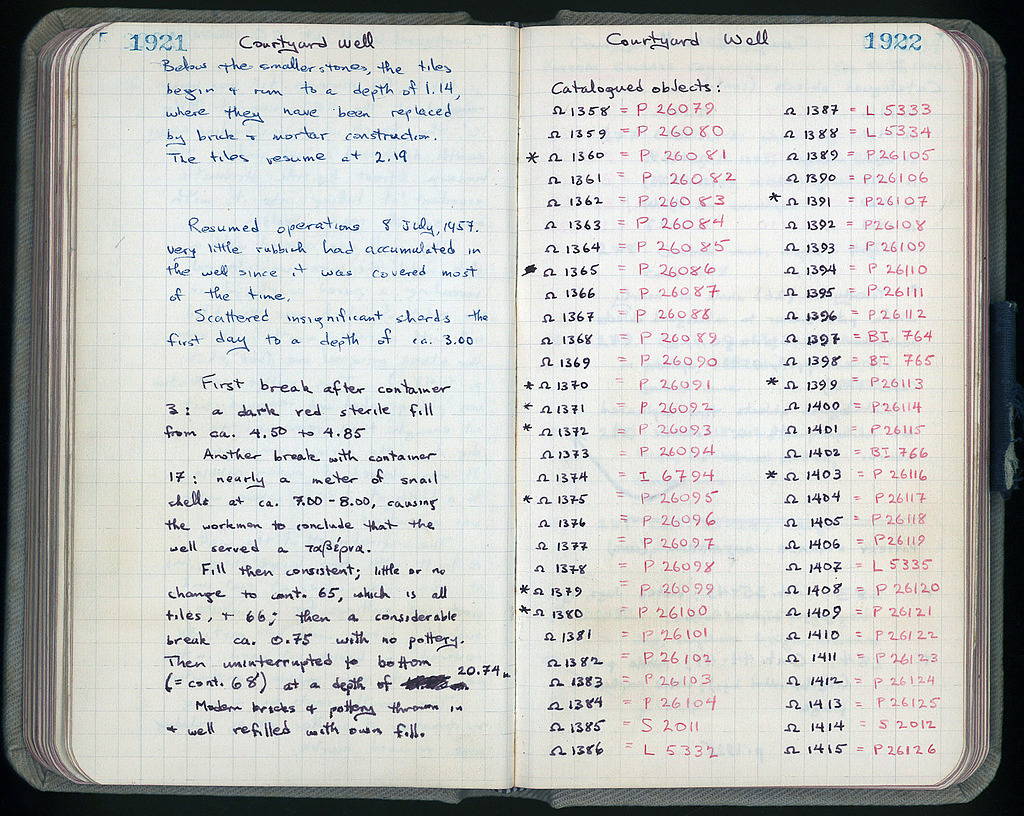 1921 Courtyard Well
Below the smaller stones, the tiles
begin & run to a depth of 1.14,
where they have been replaced
by brick & mortar construction.
The tiles resume at 2.19
Resumed operations 8 July, 1957.
very little rubbish had accumulated in
the well since it was covered most
of the time.
Scattered insignificant sherds the
first day to a depth of ca. 3.00
First break after container
3: a dark red sterile fill
from ca. 4.50 to 4.85
Another break with container
17: nearly a meter of snail
shells at ca. 7.00-8.00, causing
the workmen to conclude that the
well served a ταβέρνα.
Fill then consistent; little or no
change to cont. 65, which is all
tiles, + 66; then a considerable
break ca. 0.75 with no pottery.
Then uninterrupted to bottom
(= cont. 68) at a depth of 20.74 m.
Modern bricks & pottery thrown in
& well refilled with own fill.
Courtyard Well 1922
Catalogued objects:
Ω 1358 = P 26079
Ω 1359 = P 26080
* Ω 1360 = P 26081
Ω 1361 = P 26082
Ω 1362 = P 26083
Ω 1363 = P 26084
Ω 1364 = P 26085
Ω 1365 = P 26086
Ω 1366 = P 26087
Ω 1367 = P 26088
Ω 1368 = P 26089
Ω 1369 = P 26090
* Ω 1370 = P 26091
* Ω 1371 = P 26092
* Ω 1372 = P 26093
Ω 1373 = P 26094
Ω 1374 = I 6794
* Ω 1375 = P 26095
Ω 1376 = P 26096
Ω 1377 = P 26097
Ω 1378 = P 26098
* Ω 1379 = P 26099
* Ω 1380 = P 26100
Ω 1381 = P 26101
Ω 1382 = P 26102
Ω 1383 = P 26103
Ω 1384 = P 26104
Ω 1385 = S 2011
Ω 1386 = L 5332
Ω 1387 = L 5333
Ω 1388 = L 5334
Ω 1389 = P 26105
Ω 1390 = P 26106
* Ω 1391 = P 26107
Ω 1392 = P 26108
Ω 1393 = P 26109
Ω 1394 = P 26110
Ω 1395 = P 26111
Ω 1396 = P 26112
Ω 1397 = BI 764
Ω 1398 = BI 765
* Ω 1399 = P 26113
Ω 1400 = P 26114
Ω 1401 = P 26115
Ω 1402 = BI 766
* Ω 1403 = P 26116
Ω 1404 = P 26117
Ω 1405 = P 26118
Ω 1406 = P 26119
Ω 1407 = L 5335
Ω 1408 = P 26120
Ω 1409 = P 26121
Ω 1410 = P 26122
Ω 1411 = P 26123
Ω 1412 = P 26124
Ω 1413 = P 26125
Ω 1414 = S 2012
Ω 1415 = P 26126